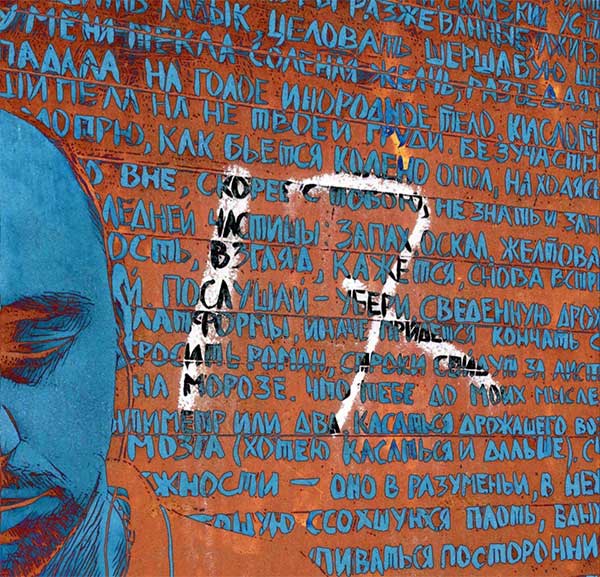 КАДЫК ЦЕЛОВАТЬ РАЗЖЁВАННЫЕ,
МЕНИ ТЕКЛА СОЛЁНАЯ ЖЕЛЧЬ, РАЗЪЕДАЯ
ПАДАЛА НА ГОЛОЕ ИНОРОДНОЕ ТЕЛО, КИСЛОТ
ШИПЕЛА НА НЕ ТВОЕЙ ГРУДИ. БЕЗУЧАСТН
КАК БЬЕТСЯ КОЛЕНО О ПОЛ, НАХОДЯСЬ
ВНЕ, СКОРЕЕ С ТОБОЮ, НЕ ЗНАТЬ И
ЛЕДНЕЙ ЧАСТИЦЫ: ЗАПАХ ЖЕЛТОВА
ОСТЬ, ВЗГЛЯД, КАЖЕТСЯ, СНОВА ВСТР
ПОСЛУШАЙ — УБЕРИ СВЕДЕННУЮ ДРОЖ
ПЛАТФОРМЫ, ИНАЧЕ ПРИДЕТСЯ КОНЧАТЬ С
БРОСИТЬ РОМАН, СТРОКИ СВИДУТ ЗА ЛИСТ
НА МОРОЗЕ. ЧТО ТЕБЕ ДО МОИХ МЫСЛЕ
НТИМЕТР ИЛИ ДВА КАСАТЬСЯ ДРОЖАЩЕГО
МОЗГА (ХОТЕЮ КАСАТЬСЯ И ДАЛЬШЕ). С
ЖНОСТИ — ОНО В РАЗУМЕНЬИ, В НЕЖ
ССОХШУЮСЯ ПЛОТЬ, ВДЫХ
ПИВАТЬСЯ ПОСТОРОННИ